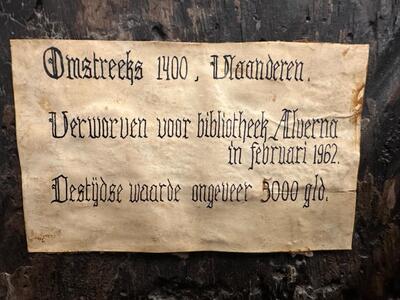 Omstreeks 1400, Vlaanderen.
Verworven voor bibliotheek Alverna
in februari 1962.
Destijdse waarde ongeveer 5000 gld.